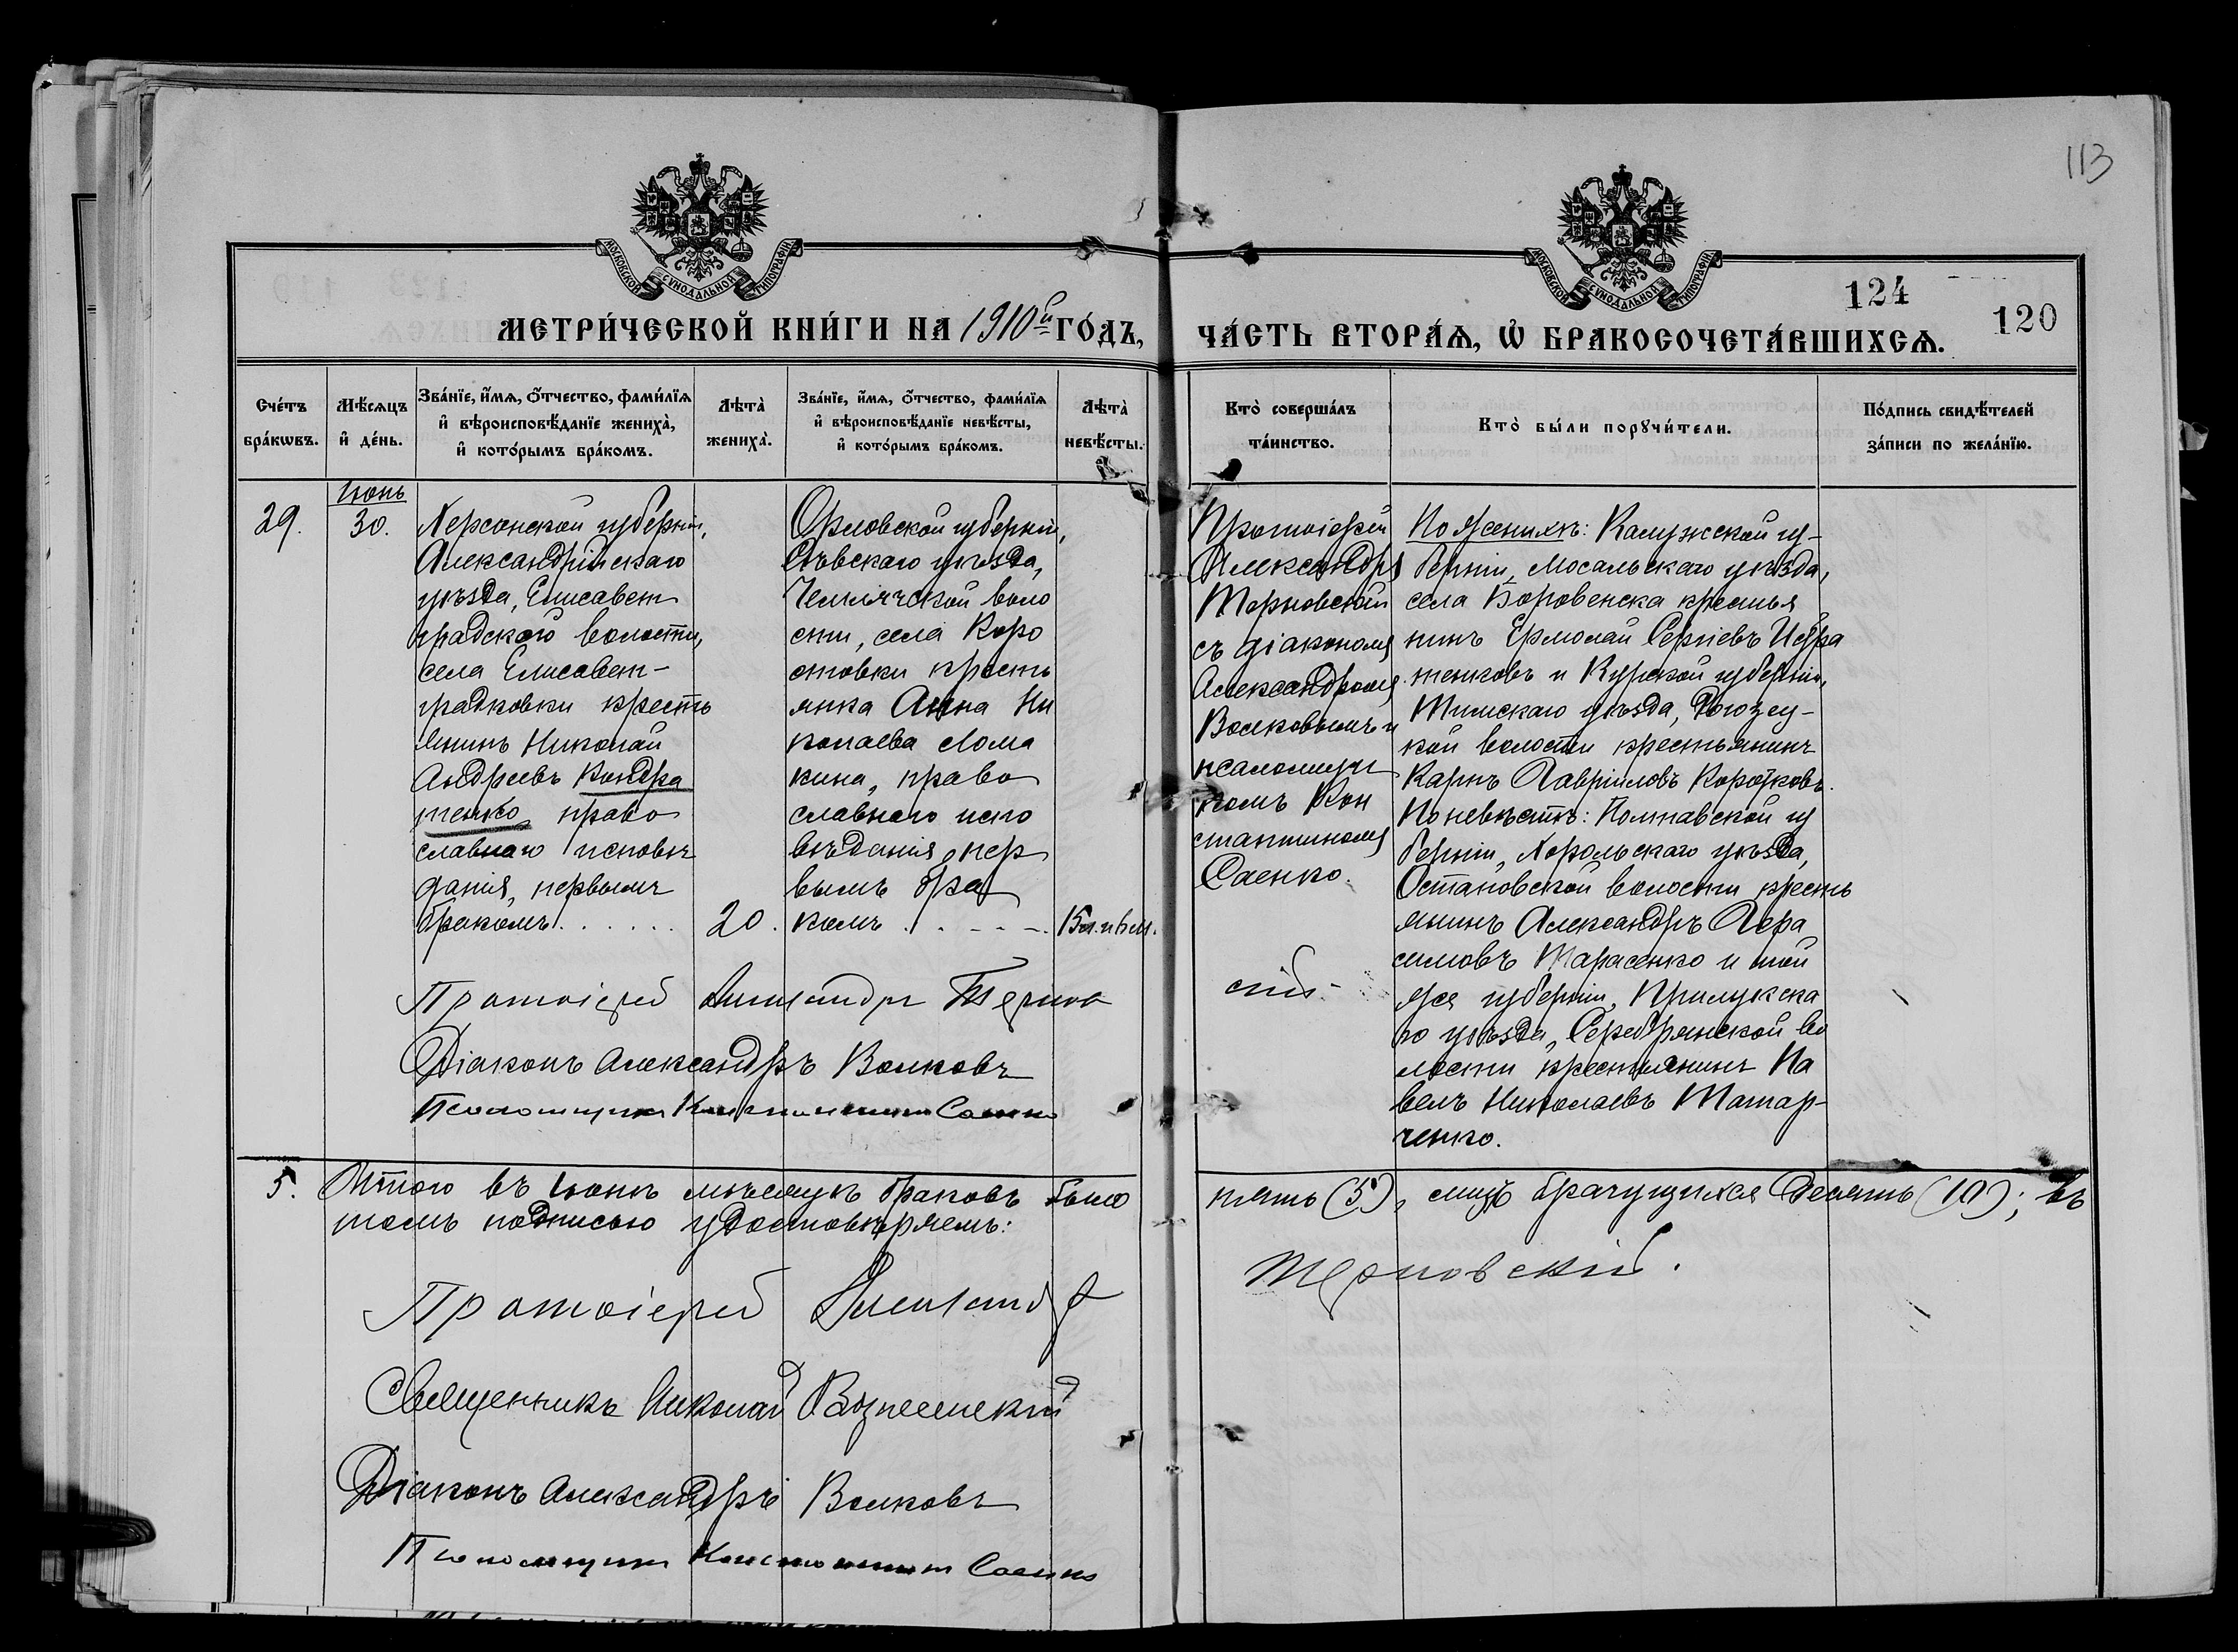 113
МОСКОВСКОЙ СѴНОДАЛЬНОЙ ТИПОГРАФІИ
МОСКОВСКОЙ СѴНОДАЛЬНОЙ ТИПОГРАФІИ
124
120
МЕТРИ́ЧЕСКОЙ КНИ́ГИ НА 1910й ГО́ДЪ,
ЧА́СТЬ ВТОРА́Ѧ, Ѡ҆ БРАКОСОЧЕТА́ВШИХСѦ.
Сче́тъ
бра́кѡвъ.
Мѣ́сѧцъ
и҆ де́нь.
Зва́нїе, и҆́мѧ, ѻ҆́тчество, фами́лїѧ
и҆ вѣроисповѣ́данїе жениха̀,
и҆ кото́рымъ бра́комъ.
Лѣ́та
жениха̀.
Зва́нїе, и҆́мѧ, ѻ҆́тчество, фами́лїѧ
и҆ вѣроисповѣ́данїе невѣ́сты,
и҆ кото́рымъ бра́комъ.
Лѣ́та
невѣ́сты.
Кто̀ соверша́лъ
та́инство.
Кто̀ бы́ли порꙋчи́тели.
По́дпись свидѣ́телей
за́писи по жела́нїю.
29.
Іюнь
30.
Херсонской губерніи,
Александрійскаго
уѣзда, Елисавет
градского волости,
села Елисавет-
градковки кресть
янинъ Николай
Андреевъ Кондра
тенко, право
славнаго исповѣ
данія, первымъ
бракомъ . . . . . .
20.
Орловской губерніи,
Сѣвскаго уѣзда,
воло
сти, села Коро
стовки кресть
янка Анна Ни
колаева Лома
кина, право
славнаго испо
вѣданія, пер
вымъ бра
комъ . . - - -.
15л. и 6 м.
Протоіерей
Александръ
Терновскій
съ діакономъ
Александромъ
Волковымъ и
псаломщи
комъ Кон
стантиномъ
Саенко.
По женихѣ: Калужской гу-
берніи, Мосальскаго уѣзда,
села Боровенска крестья
нинъ Ермолай Сергіевъ Игра
тенковъ и Курской губерніи,
Тимскаго уѣзда,
кой волости крестьянинъ
Карпъ Гавріиловъ Коротковъ.
По невѣстѣ: Полтавской гу
берніи, Хорольскаго уѣзда,
Остаповской волости кресть
янинъ Александръ Гера
симовъ Тарасенко и той
же губерніи, Прилукска
го уѣзда, Серебрянской во
лости крестьянинъ Па
велъ Николаевъ Татар-
ченко.
Протоіерей Александръ Тернов
скій.
Діаконъ Александръ Волковъ
Псаломщикъ Константинъ Саенко
5. Итого въ Іюнѣ мѣсяцѣ браковъ было
пять (5), лицъ брачущихся десять (10); въ
томъ подписью удостовѣряемъ:
Протоіерей Александръ
Терновскій.
Священникъ Николай Вознесенскій
Діаконъ Александръ Волковъ
Псаломщикъ Константинъ Саенко